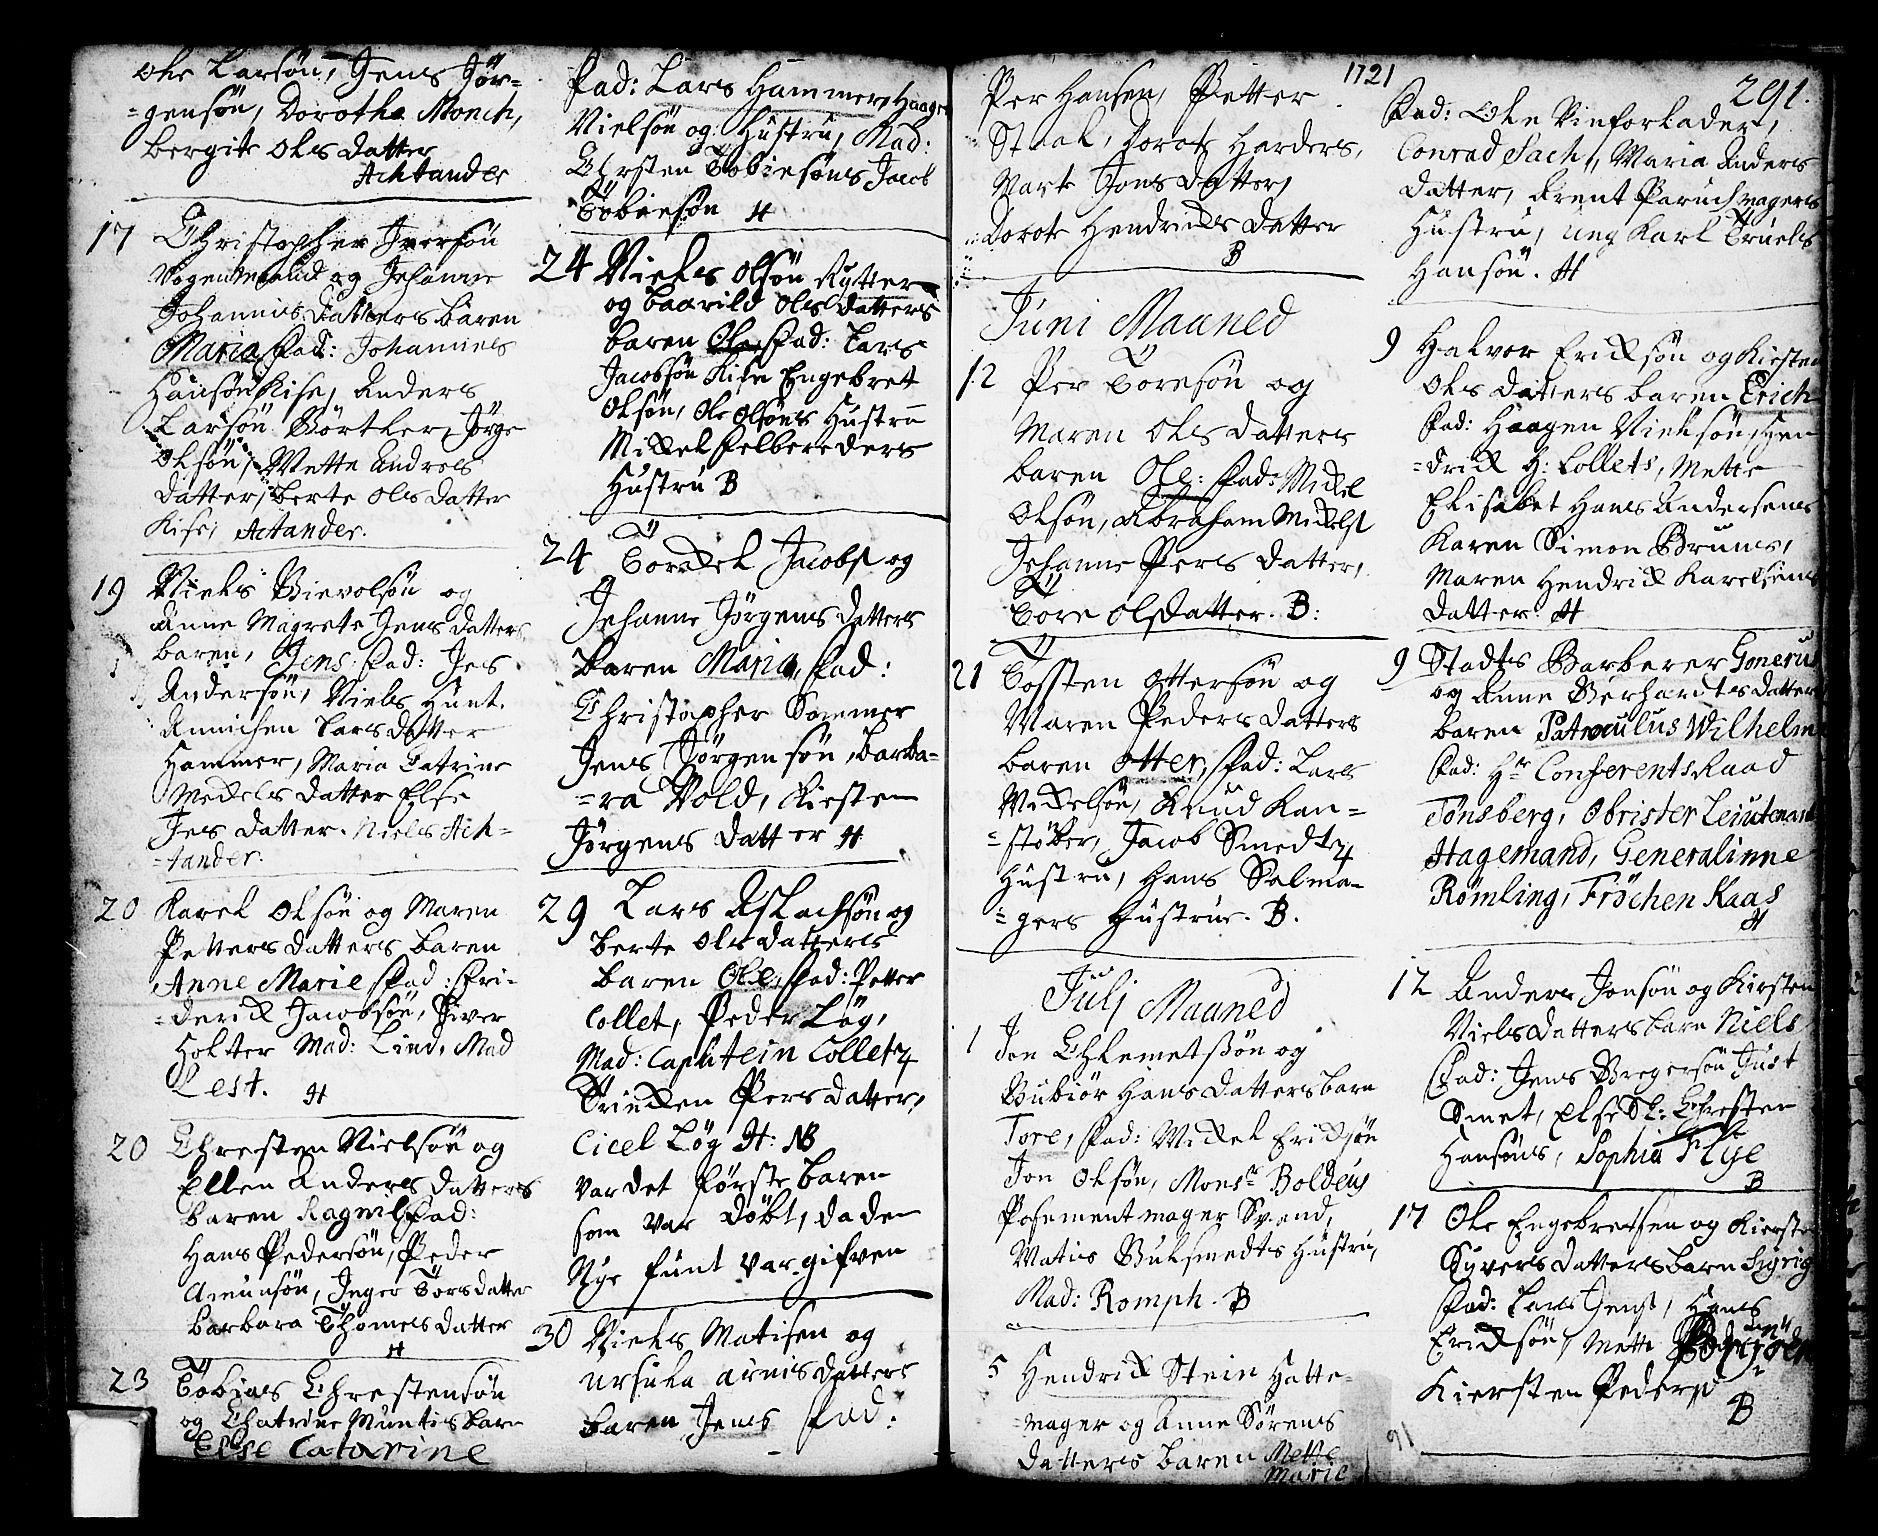 Ole Larsøn, Jens Jør-
=gensøn, Dorothe Monch,
bergite Ols datter
Achtander
17 Christopher Iversøn
Vogenmand og Johanne
Johannis datters baren
Maria, Fad: Johannes
Hansøn Kise, Anders
Larsøn Børtker, Jørge
Olsøn, Mette Andreis
datter, berte Ols datter
Kise, Actander.
19 Niels Bievolsøn og
Anne Magrete Jens datters
baren, Jens, Fad: Jes
Andersøn, Niels Hunt,
Annichen Lars datter
Hammer, Maria Catrine
Mickels datter Else
Jes datter. Niels Ach=
=tander.
20 Karel Olsøn og Maren
Petters datters baren
Anne Marie, Fad: Fri-
=derick Jacobsøn, Siver
Holter Mad: Lind, Mad
Lest. H
20 Christen Nielsøn og
Ellen Anders datters
baren Ragnil, Fad:
Hans Pedersøn, Peder
Amunsøn, Inger Torsdatter
barbara Thomes datter
H
23 Tobias Chrestensøn
og Chatrine Muntis barn
Else Catarine
Fad: Lars Hammer, Haagen
Nielsøn og Hustru, Mad:
Chrsten Tobiesøns Jacob
Tobiesøn H
24 Niels Olsøn Rytter
og baarild Ols datters
baren Ole, Fad: Lars
Jacobsøn Kise Engebret
Olsøn, Ole Olsøns Hustru
Mickel Felbereders
Hustru B
24 Torckel Jacobs og
Johanne Jørgens datters
baren Maria, Fad:
Christopher Sommer
Jens Jørgensøn, barba=
=ra Vold, Kiersten
Jørgens datter H
29 Lars Aslachsøn og
berte Ols datters
baren Ole, Fad: Petter
Collet, Peder Løg,
Mad: Caputein Colletz
Trinken Pers datter,
Cicel Løg H: NB
var det første baren
som var døbt, da den
Nye funt var gifven
30 Niels Matisen og
Ursula arnis datters
baren Jens Fad:
1721
Per Hansen, Petter
Staal, Dorote Harders,
Marte Jons datter,
Dorote Hendricks datter
B
Juni Maaned
12 Per Toresøn og
Maren Ols datters
baren Ole: Fad: Mickel
Olsøn, Abraham Mickels
Johanne Pers datter,
Tore Olsdatter. B:
21 Tossten Ottersøn og
Maren Peders datters
baren Otter, Fad: Lars
Mickelsøn, Knud Kan=
=støber, Jacob Smedtz
Hustru, Hans Salma-
=gers Hustrue. B.
Julj Maaned
1 Jon Chlemetsøn og
Gubiør Hans datters barn
Tore, Fad: Mickel Ericksøn
Jon Olsøn, Monsr Boldeus
Posementmager Svend,
Matis Buksmedts Hustru,
Mad: Romph. B
5 Hendrick Stein Hatte-
=mager og Anne Sørens
datters baren Mette
Marie
291.
Fad: Ole Vinforlader,
Conrad Sach, Maria Anders
datter, Arent Paruchmagers
Hustru, ung Karl Truels
Hansøn. H
9 Halvor Ericksøn og Kirsten
Ols datters baren Erich
Fad: Haagen Nielsøn, Hen
=drick H: Collets, Mette
Elisabet Hans Andersens
Karen Simon Bruuns,
Maren Hendrick Karelsens
datter. H
9 Stadts Barberer Gonerus
og Anne Gerhardts datters
baren Patroculus Wilhelm
Fad: Hr Conferents Raad
Tønsberg, Obrister Leiutenant
Hagemand, Generalinne
Rømling, Frøchen Kaas
H
12 Anders Jonsøn og Kirsten
Niels datters barn Niels
Fad: Jens Gregersøn Just
Smet, Else Sl: Chresten
Hansøns, Sophia Flye
B
17 Ole Engebretsen og Kiersten
Syvers datters barn Sigrig
Fad: Lars Jens, Hans
Ericksøn, Mette
Kiersten Peders
B
91